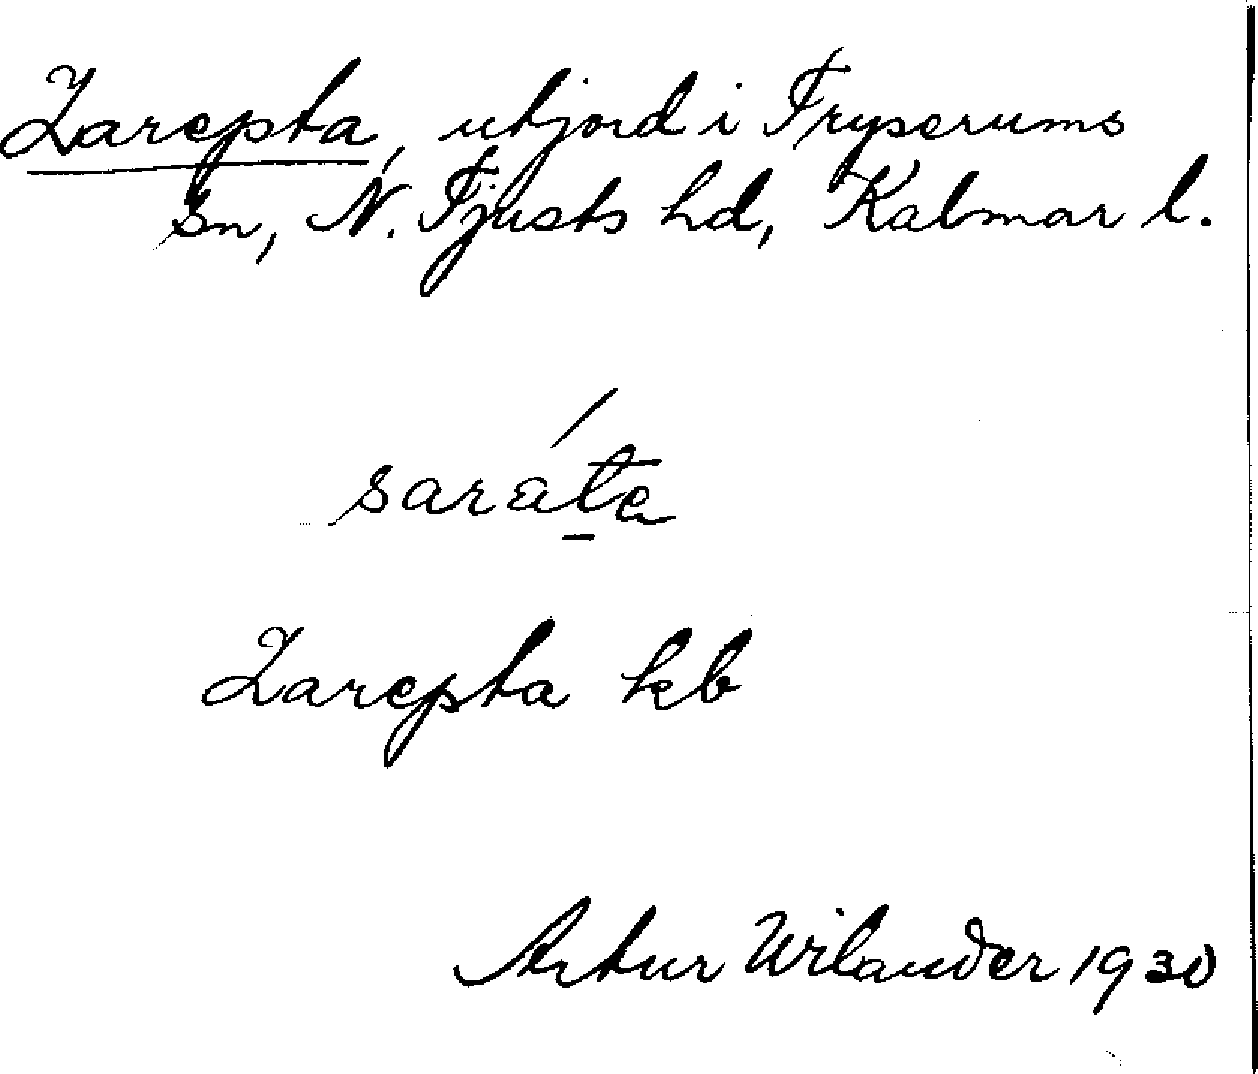 Zarepta, utjord i Tryserums
sn, N. Tjusts hd, Kalmar l.
saráta
Zarepta kb
Artur Wilander 1930